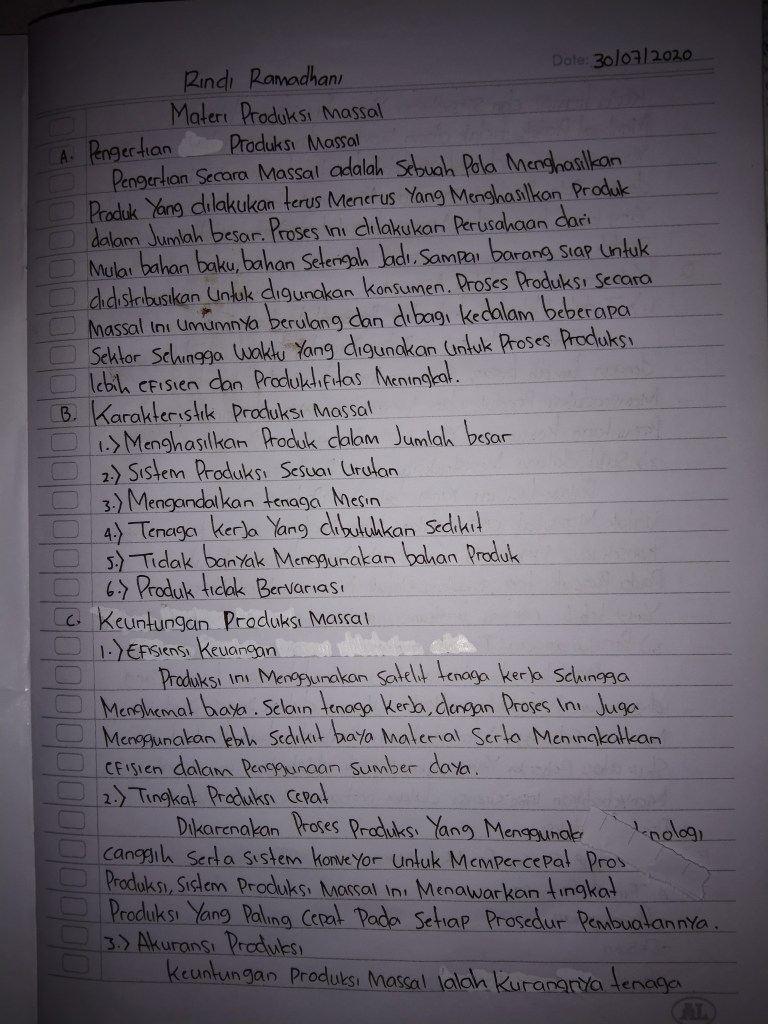 Date: 30/07/2020
Rindi Ramadhani
Materi Produksi Massal
A. Pengertian Produksi Massal
Pengertian Secara Massal adalah Sebuah Pola Menghasilkan
Produk Yang dilakukan terus Menerus Yang Menghasilkan Produk
dalam Jumlah besar. Proses ini dilakukan Perusahaan dari
Mulai bahan baku, bahan Setengah Jadi, Sampai barang siap Untuk
didistribusikan Untuk digunakan konsumen. Proses Produksi Secara
Massal ini umumnya berulang dan dibagi kedalam beberapa
Sektor Sehingga Waktu Yang digunakan Untuk Proses Produksi
lebih efisien dan Produktifitas Meningkat.
B. Karakteristik Produksi Massal
1.) Menghasilkan Produk dalam Jumlah besar
2.) Sistem Produksi Sesuai Urutan
3.) Mengandalkan tenaga Mesin
4.) Tenaga kerja Yang dibutuhkan Sedikit
5.) Tidak banyak Menggunakan bahan Produk
6.) Produk tidak Bervariasi
C. Keuntungan Produksi Massal
1.) Efisiensi Keuangan
Produksi ini Menggunakan Satelit tenaga kerja Sehingga
Menghemat biaya. Selain tenaga Kerja, dengan Proses Ini Juga
Menggunakan lebih Sedikit biaya Material Serta Meningkatkan
efisien dalam Penggunaan sumber daya.
2.) Tingkat Produksi Cepat
Dikarenakan Proses Produksi Yang Menggunak knologi
canggih Serta Sistem Konveyor Untuk Mempercepat Pros
Produksi, Sistem Produksi Massal ini Menawarkan tingkat
Produksi Yang Paling Cepat Pada Setiap Prosedur Pembuatannya.
3.) Akuransi Produksi
Keuntungan Produksi Massal ialah Kurangnya tenaga
AL